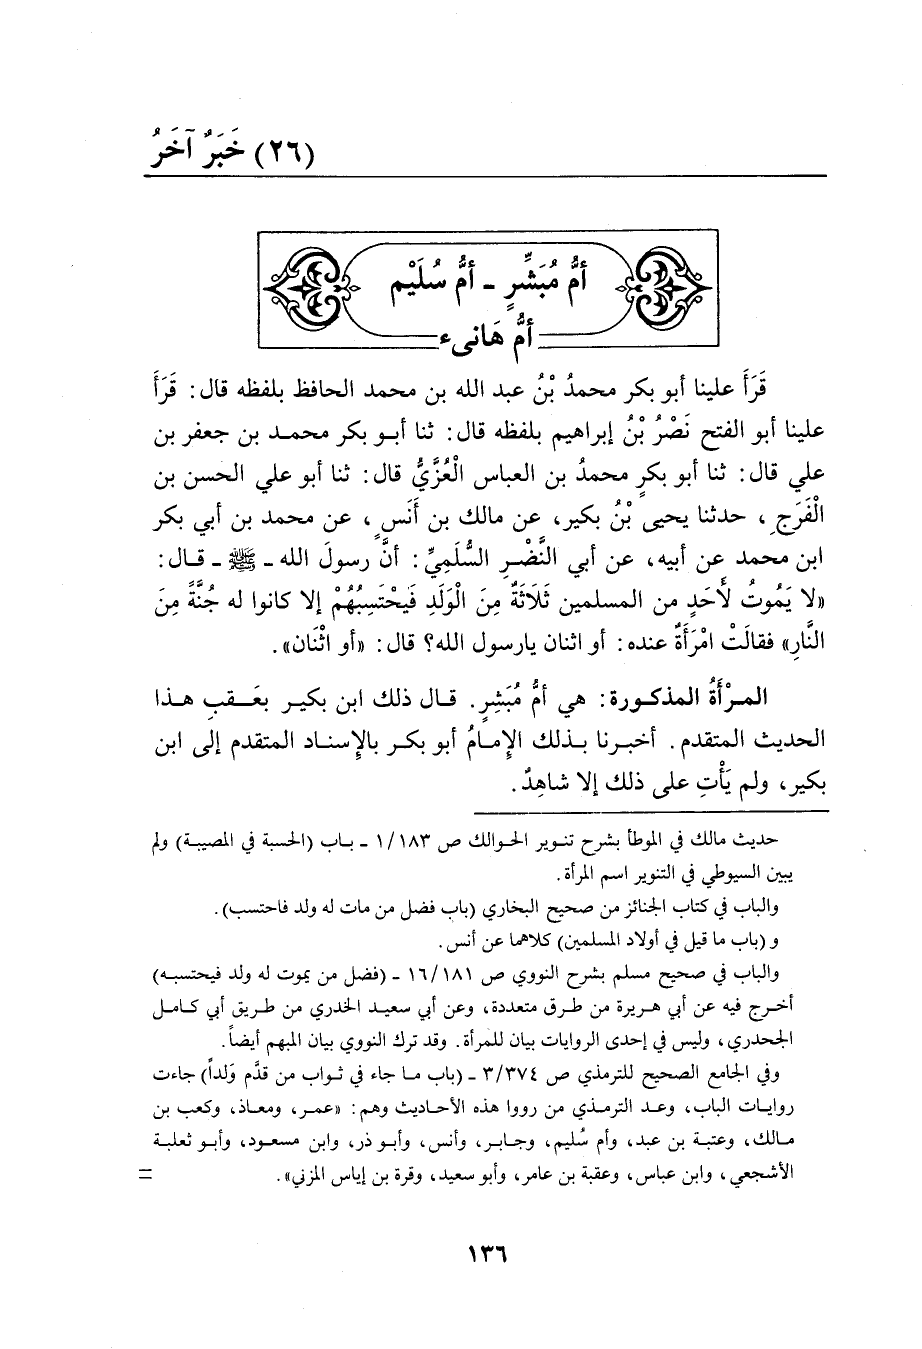 (٢٦) خَبَرٌ آخَرُ
أمُّ مُبَشِّرٍ - أمُّ سُلَيْم
أمُّ هَانىء
قَرَأَ علينا أبو بكر محمدُ بْنُ عبد الله بن محمد الحافظ بلفظه قال: قَرَأَ
علينا أبو الفتح نَصْرُ بْنُ إبراهيم بلفظه قال: ثنا أبو بكر محمد بن جعفر بن
علي قال: ثنا أبو بكرٍ محمدُ بن العباس الْغُزِّيُّ قال: ثنا أبو علي الحسن بن
الْفَرَجِ، حدثنا يحيى بْنُ بكير، عن مالك بن أَنَسٍ، عن محمد بن أبي بكر
ابن محمد عن أبيه، عن أبي النَّضْرِ السُّلَمِيِّ: أنَّ رسولَ الله - ﷺ - قال:
«لا يَمُوتُ لأَحَدٍ من المسلمين ثَلَاثَةٌ مِنَ الْوَلَدِ فَيْحْتَسِبُهُمْ إلا كانوا له جُنَّةً مِنَ
النَّارِ» فقالَتْ امْرَأَةٌ عنده: أو اثنان يارسول الله؟ قال: «أو اثْنَان».
المرْأَةُ المذكورة: هي أمُّ مُبَشِرٍ. قال ذلك ابن بكير بعَقبِ هذا
الحديث المتقدم. أخبرنا بذلك الإمامُ أبو بكر بالإسناد المتقدم إلى ابن
بكير، ولم يَأْتِ على ذلك إلا شاهِدٌ.
حديث مالك في الموطأ بشرح تنوير الحوالك ص ١/١٨٣ - باب (الحسبة في المصيبة) ولم
يبين السيوطي في التنوير اسم المرأة.
والباب في كتاب الجنائز من صحيح البخاري (باب فضل من مات له ولد فاحتسب).
و (باب ما قيل في أولاد المسلمين) كلاهما عن أنس.
والباب في صحيح مسلم بشرح النووي ص ١٦/١٨١ - (فضل من يموت له ولد فيحتسبه)
أخرج فيه عن أبي هريرة من طرق متعددة، وعن أبي سعيد الخدري من طريق أبي كامل
الجحدري، وليس في إحدى الروايات بيان للمرأة. وقد ترك النووي بيان المبهم أيضاً.
وفي الجامع الصحيح للترمذي ص ٣/٣٧٤ - (باب ما جاء في ثواب من قدَّم وَلداً) جاءت
روايات الباب، وعد الترمذي من رووا هذه الأحاديث وهم: «عمر، ومعاذ، وكعب بن
مالك، وعتبة بن عبد، وأم سُليم، وجابر، وأنس، وأبو ذر، وابن مسعود، وأبو ثعلبة
الأشجعي، وابن عباس، وعقبة بن عامر، وأبو سعيد، وقرة بن إياس المزني».  =
١٣٦